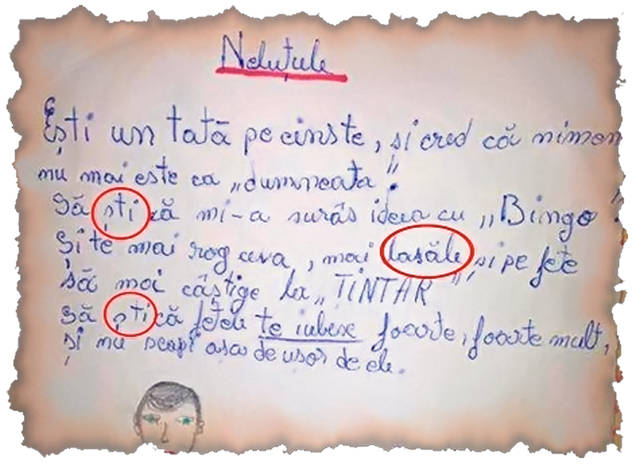 Neluțule
Ești un tată pe cinste, și cred că nimen
nu mai este ca „dumneata”.
Să ști că mi-a surâs ideea cu „Bingo”.
Și te mai rog ceva, mai lasăle și pe fete
să mai câștige la „ȚINTAR”,
Să ști că fetele te iubesc foarte, foarte mult,
și nu scapi așa de ușor de ele.